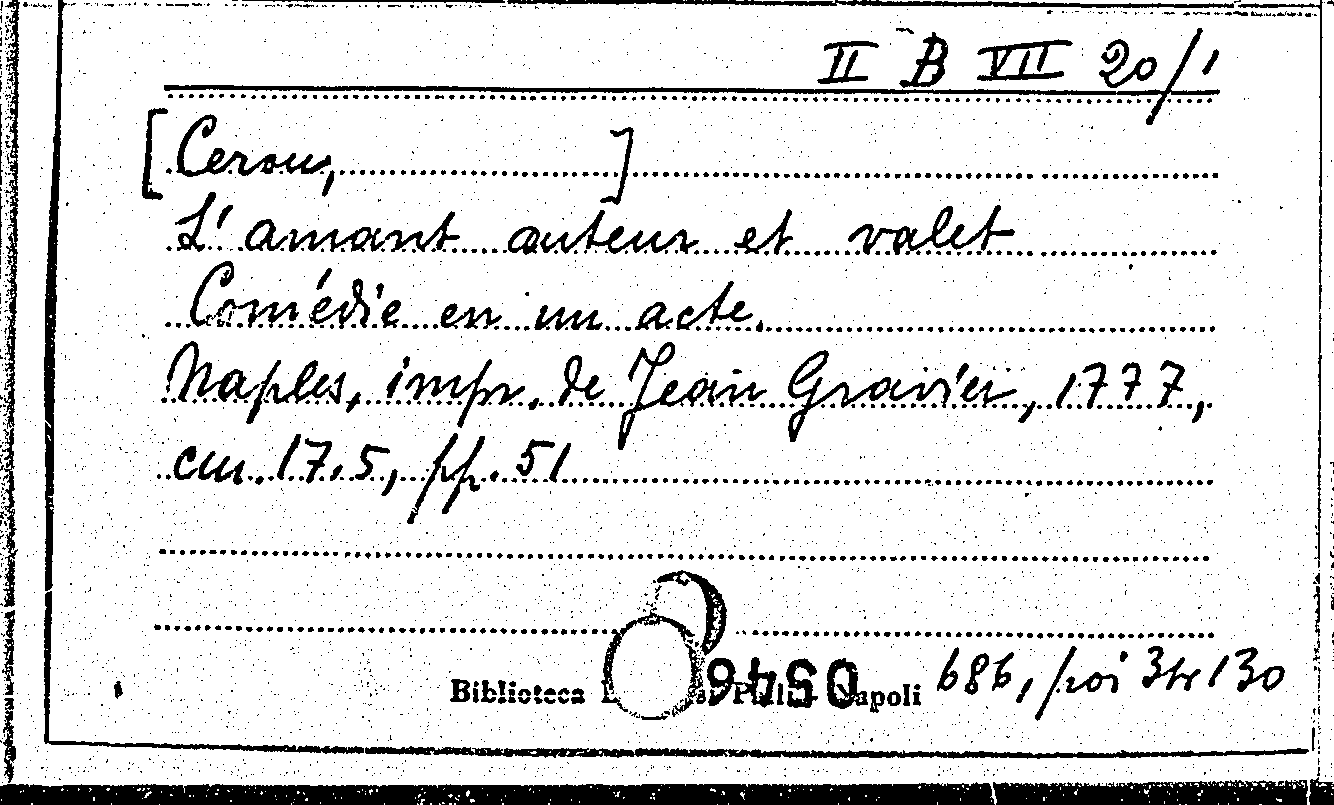 II B VII 20/1
[Cerou, ]
L'amant auteur et valet
Comédie en un acte.
Naples, impr. de Jean Gravier, 1777,
cm. 17.5, pp. 51
Biblioteca Napoli 686, poi 3tr 130